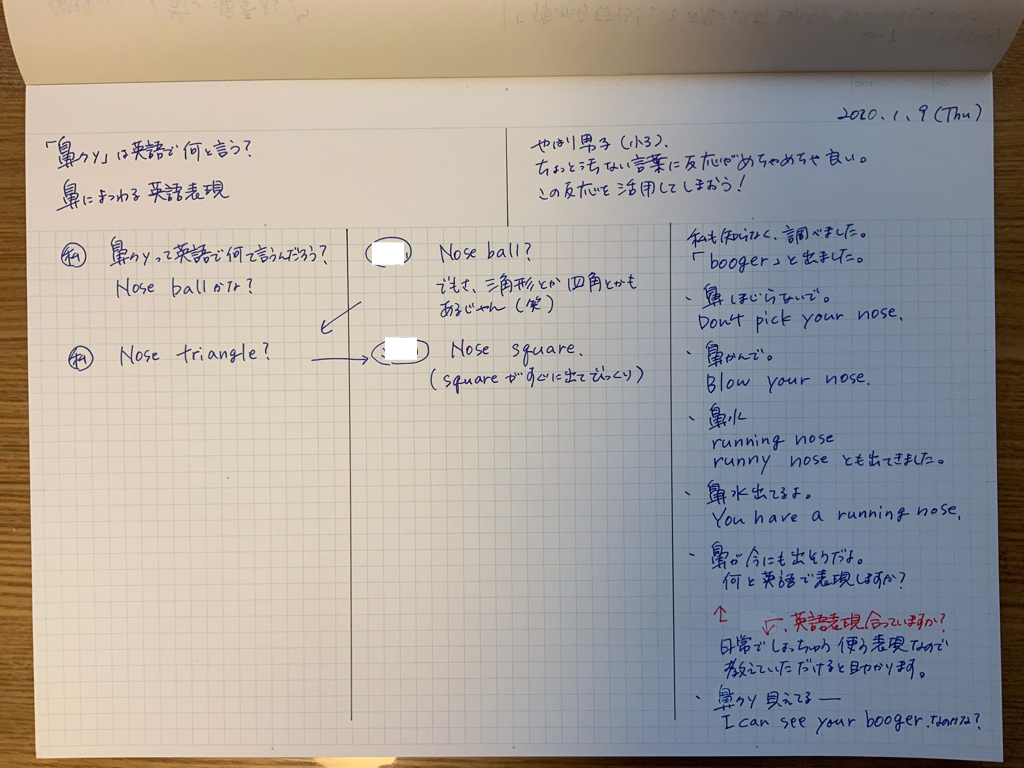 DATE
NO.
2020.1.9(Thu)
「鼻クソ」は英語で何と言う?
鼻にまつわる英語表現
やはり男子(小3)、
ちょっときたない言葉に反応がめちゃめちゃ良い。
この反応を活用してしまおう!
私 鼻クソって英語で何て言うんだろう?
Nose ballかな?
Nose ball?
でもさ、三角形とか四角とかも
あるじゃん(笑)
私 Nose triangle?
Nose square.
(squareがすぐに出てびっくり)
私も知らなく、調べました。
「booger」と出ました。
・鼻ほじらないで。
Don't pick your nose.
・鼻かんで。
Blow your nose.
・鼻水
running nose
runny nose とも出てきました。
・鼻水出てるよ。
You have a running nose.
・鼻が今にも出そうだよ。
何と英語で表現しますか?
↑
、英語表現合っていますか?
日常でしょっちゅう使う表現なので
教えていただけると助かります。
・鼻クソ見えてるー
I can see your booger.なのかな?